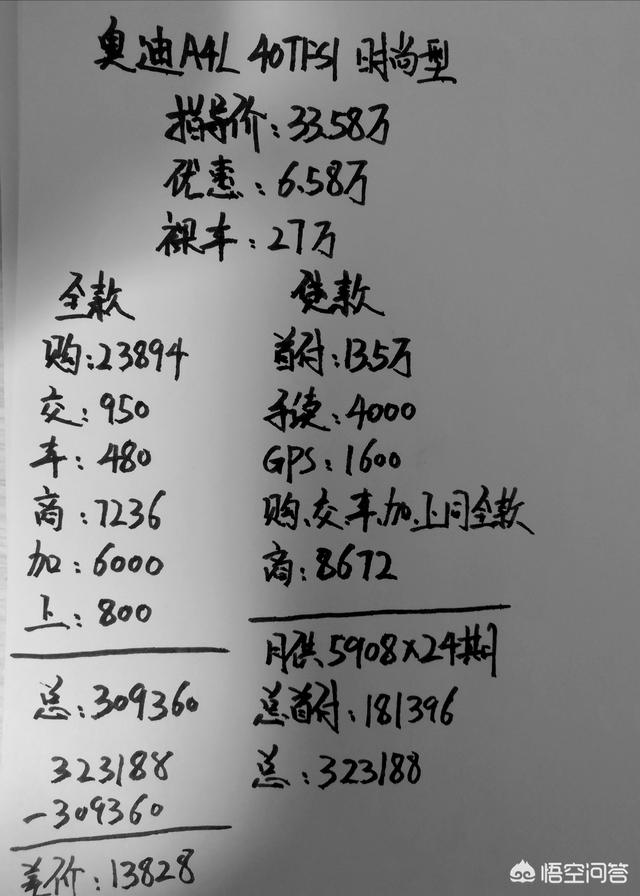 奥迪A4L 40TFSI 时尚型
指导价:33.58万
优惠:6.58万
裸车:27万
全款
购:23894
交:950
车:480
商:7236
加:6000
上:800
总:309360
323188
-309360
差价:13828
贷款
首付:13.5万
手续:4000
GPS:1600
购、交、车、加、上同全款
商:8672
月供5908×24期
总首付:181396
总:323188
悟空问答